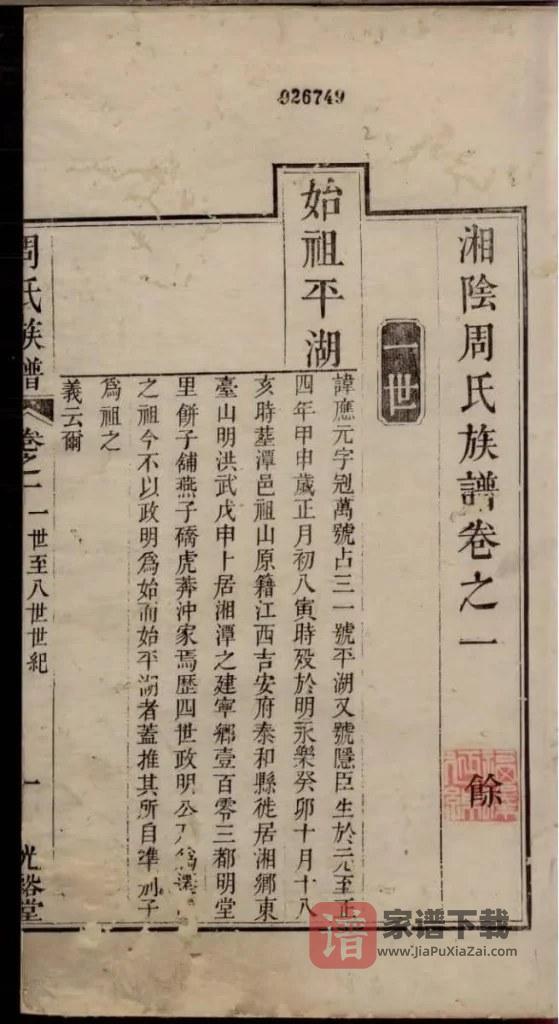 026749
湘陰周氏族譜卷之一
餘
一世
始祖平湖
諱應元字冠萬號占三一號平湖又號隱臣生於元至正
四年甲申歲正月初八寅時歿於明永樂癸卯十月十八
亥時塟潭邑祖山原籍江西吉安府泰和縣徙居湘鄉東
臺山明洪武戊申卜居湘潭之建寧鄉壹百零三都明堂
里餅子舖燕子礄虎莾沖家焉歷四世政明公
之祖今不以政明爲始而始平湖者蓋推其所自準別子
爲祖之
義云爾
周氏族譜
卷之一
一世至八世世紀
一
光裕堂
譜
家谱下载
www.JiaPuXiaZai.com